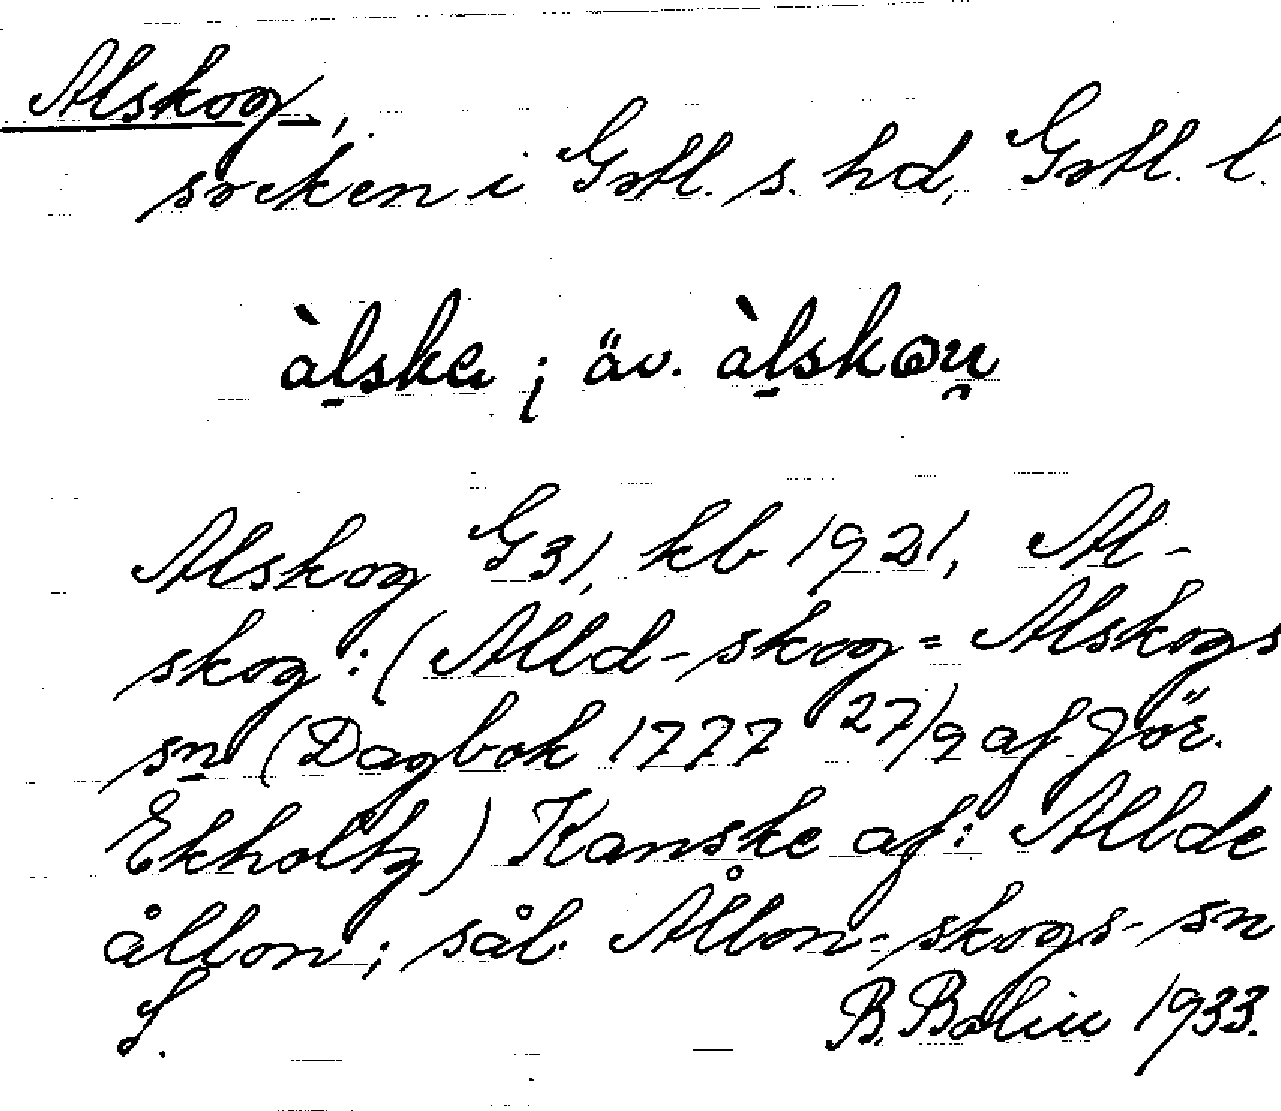 Alskog,
socken i Gotl. s. hd, Gotl. l.
àlska; äv. àlskou̯
Alskog G 31, kb 1921, Al-
skog: (Alld-skog = Alskogs
sn (Dagbok 1777 27/9 af Jör.
Ekholtz) Kanske af: Allde
ållon; sål. Ållon-skogs-sn
S. B. Bolin 1933.